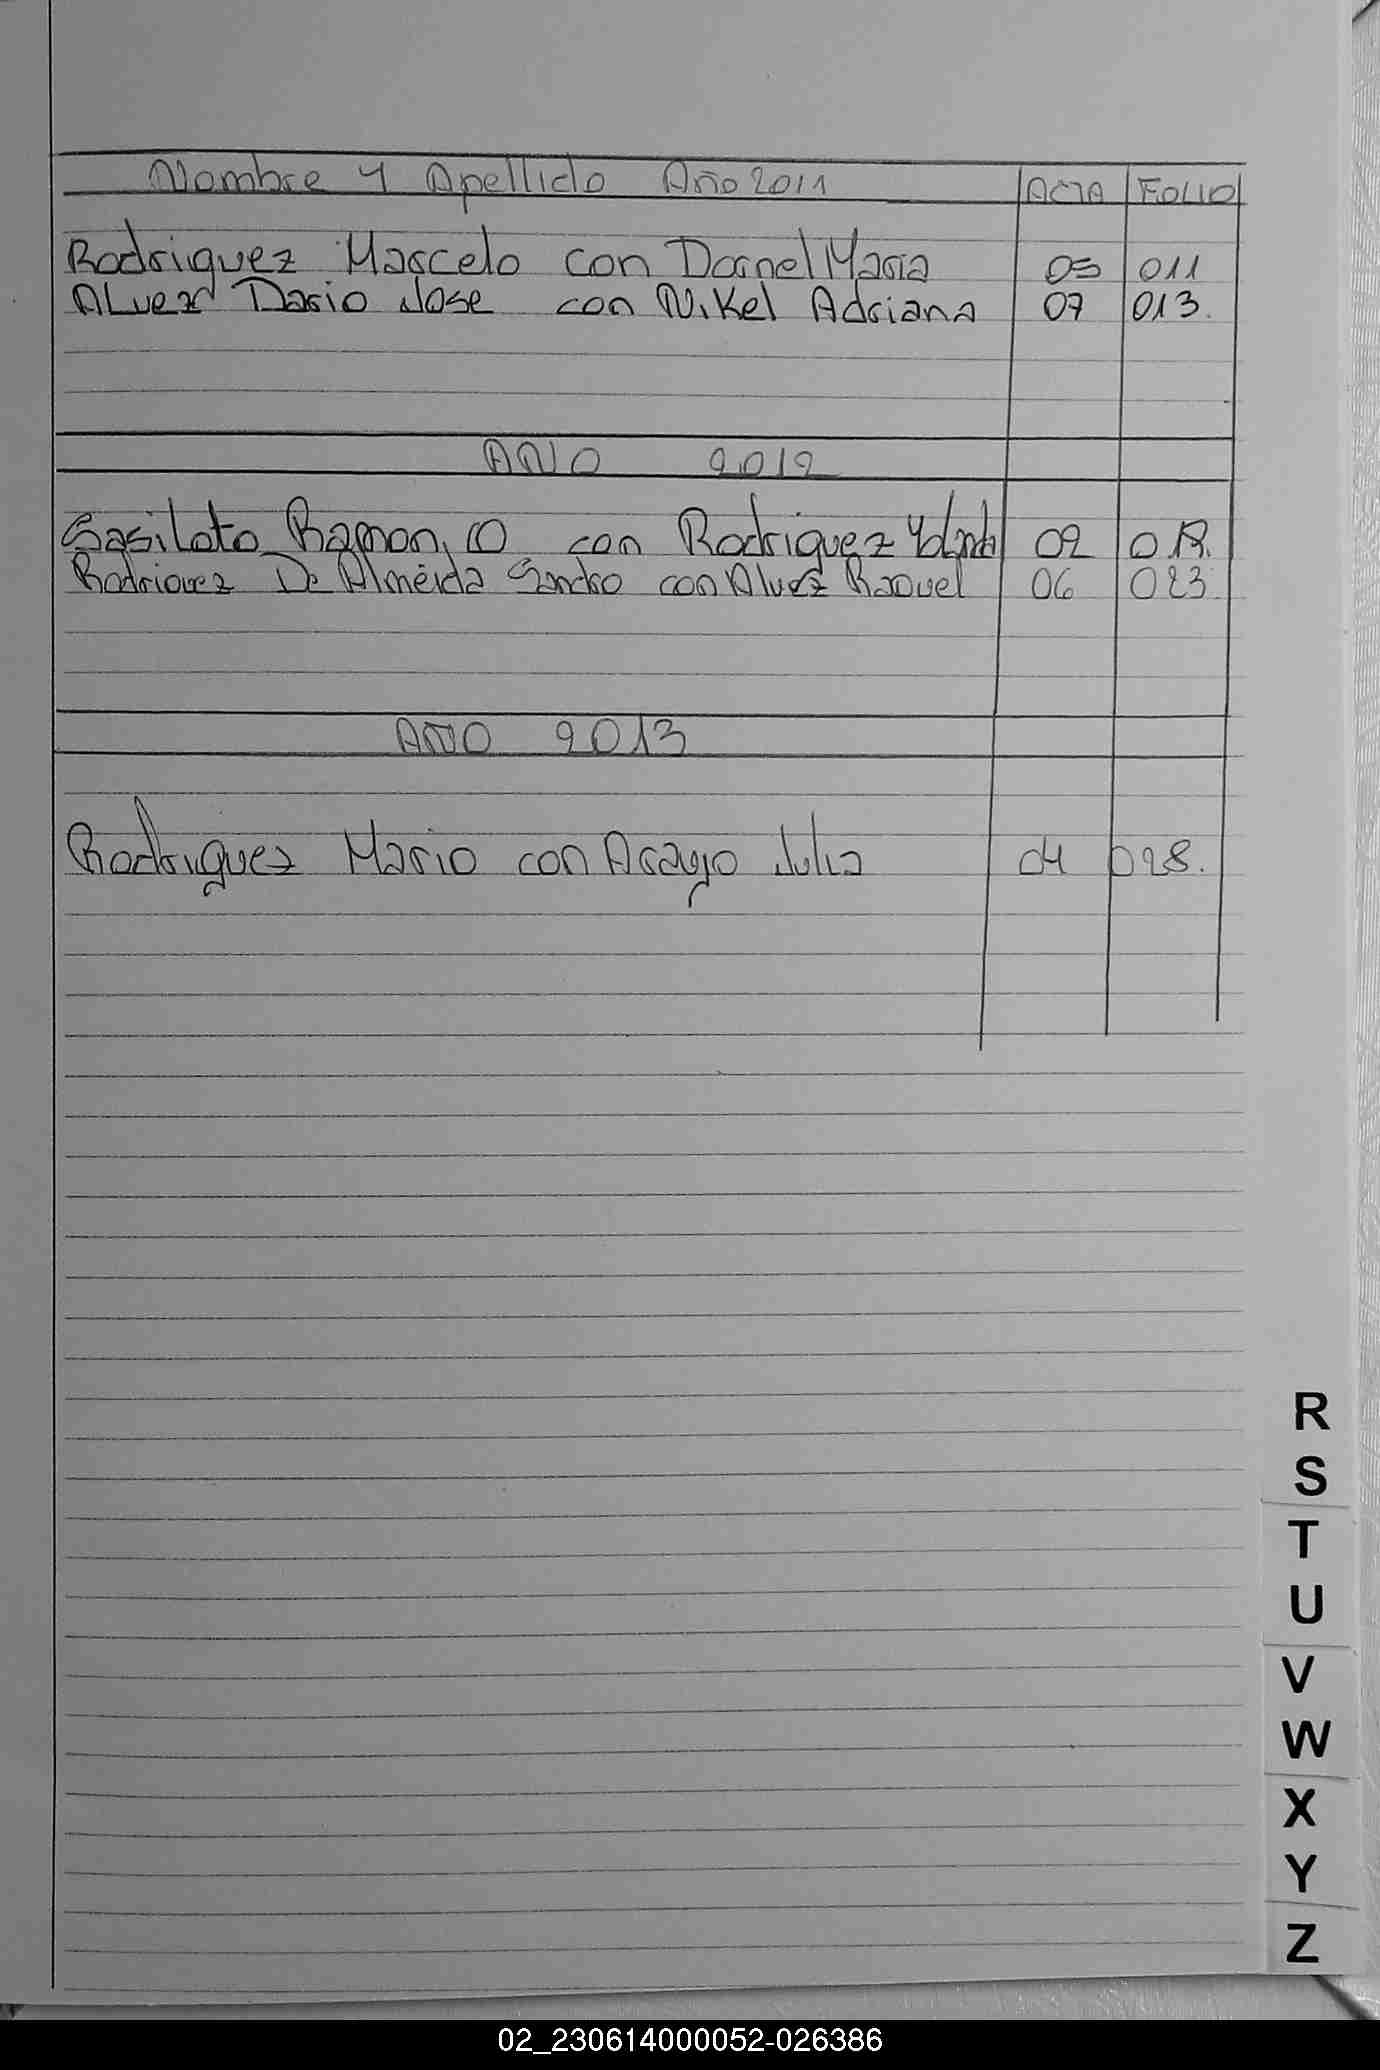 Nombre Y Apellido Año 2011 ACTA FOLIO
Rodriguez Marcelo con Dornel Maria 05 011
ALvez Dario Jose con Nikel Adriana 07 013.
AÑO 2012
Ramon, O con Rodriguez Yolanda 02
Rodriguez De Almeida Sandro con Alvez Raquel 06 023.
AÑO 2013
Rodriguez Mario con Araujo Julia 04 028.
R
S
T
U
V
W
X
Y
Z
02_230614000052-026386